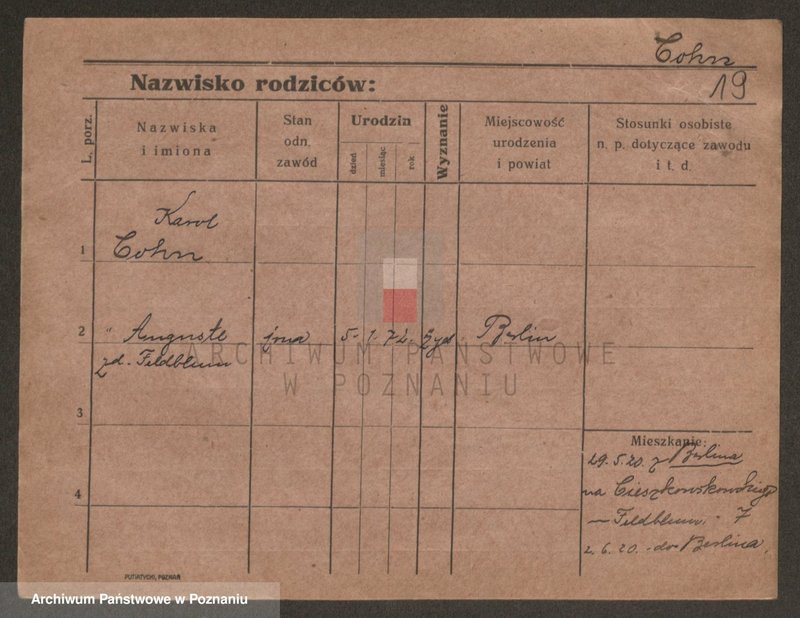 Cohn
19
Nazwisko rodziców:
L. porz.
Nazwiska
i imiona
Stan
odn.
zawód
Urodzin
dzień
miesiąc
rok
Wyznanie
Miejscowość
urodzenia
i powiat
Stosunki osobiste
n. p. dotyczące zawodu
i t. d.
Karol
1 Cohn
2 " Auguste żona 5. 1. 72. żyd. Berlin
zd. Feldblum
ARCHIWUM PAŃSTWOWE
W POZNANIU
3
Mieszkanie:
29.5.20. z Berlina
4 na Cieszkowskiego
– Feldblum. 7
2.6.20. do Berlina.
PUTIATYCKI, POZNAŃ
Archiwum Państwowe w Poznaniu